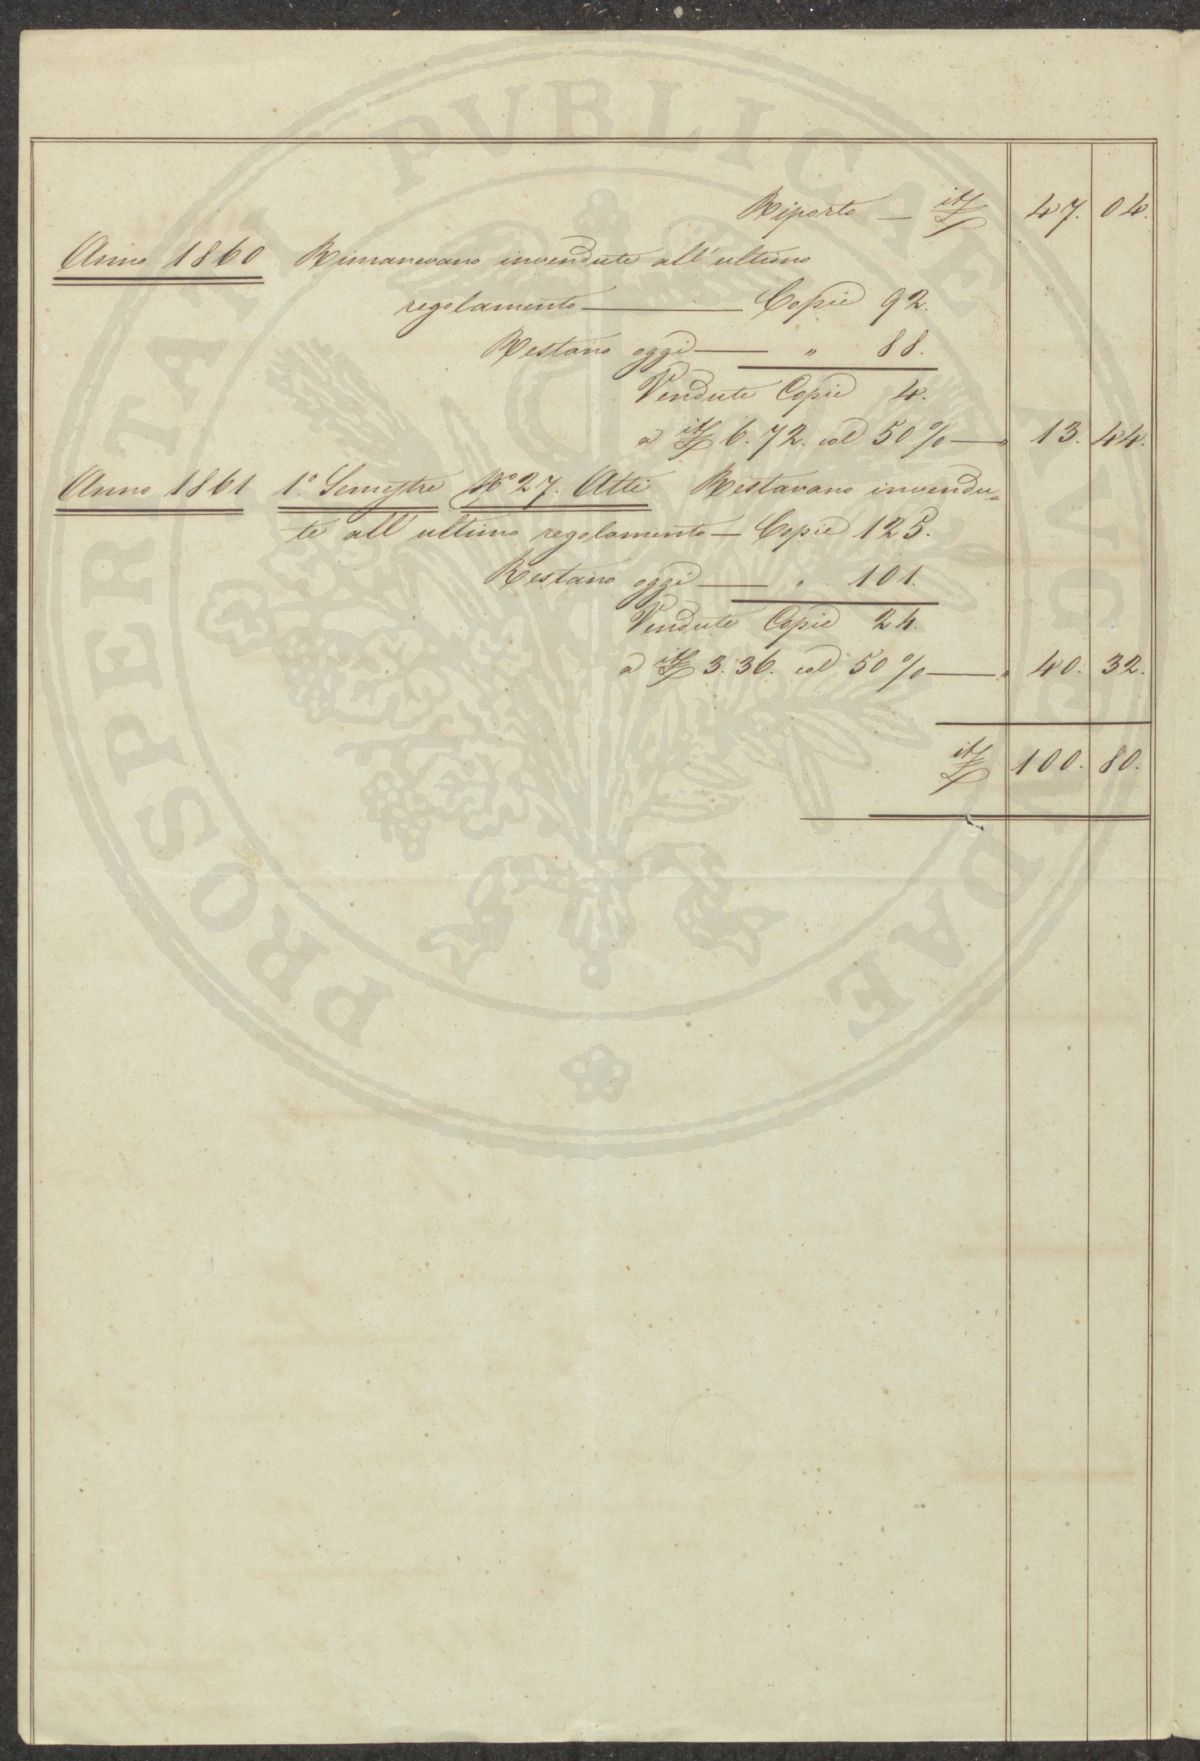 Riporto — it£ 47. 04.
Anno 1860 Rimanevano invendute all'ultimo
regolamento — Copie 92.
Restano oggi — " 88.
Vendute Copie 4.
a it£ 6.72. col 50% — " 13. 44.
Anno 1861 1.° Semestre N.° 27. Atti Restavano invendu=
te all'ultimo regolamento — Copie 125.
Restano oggi — " 101.
Vendute Copie 24.
a it£ 3.36. col 50% — " 40. 32.
it£ 100. 80.
PROSPERITATI PVBLICAE AVGENDAE